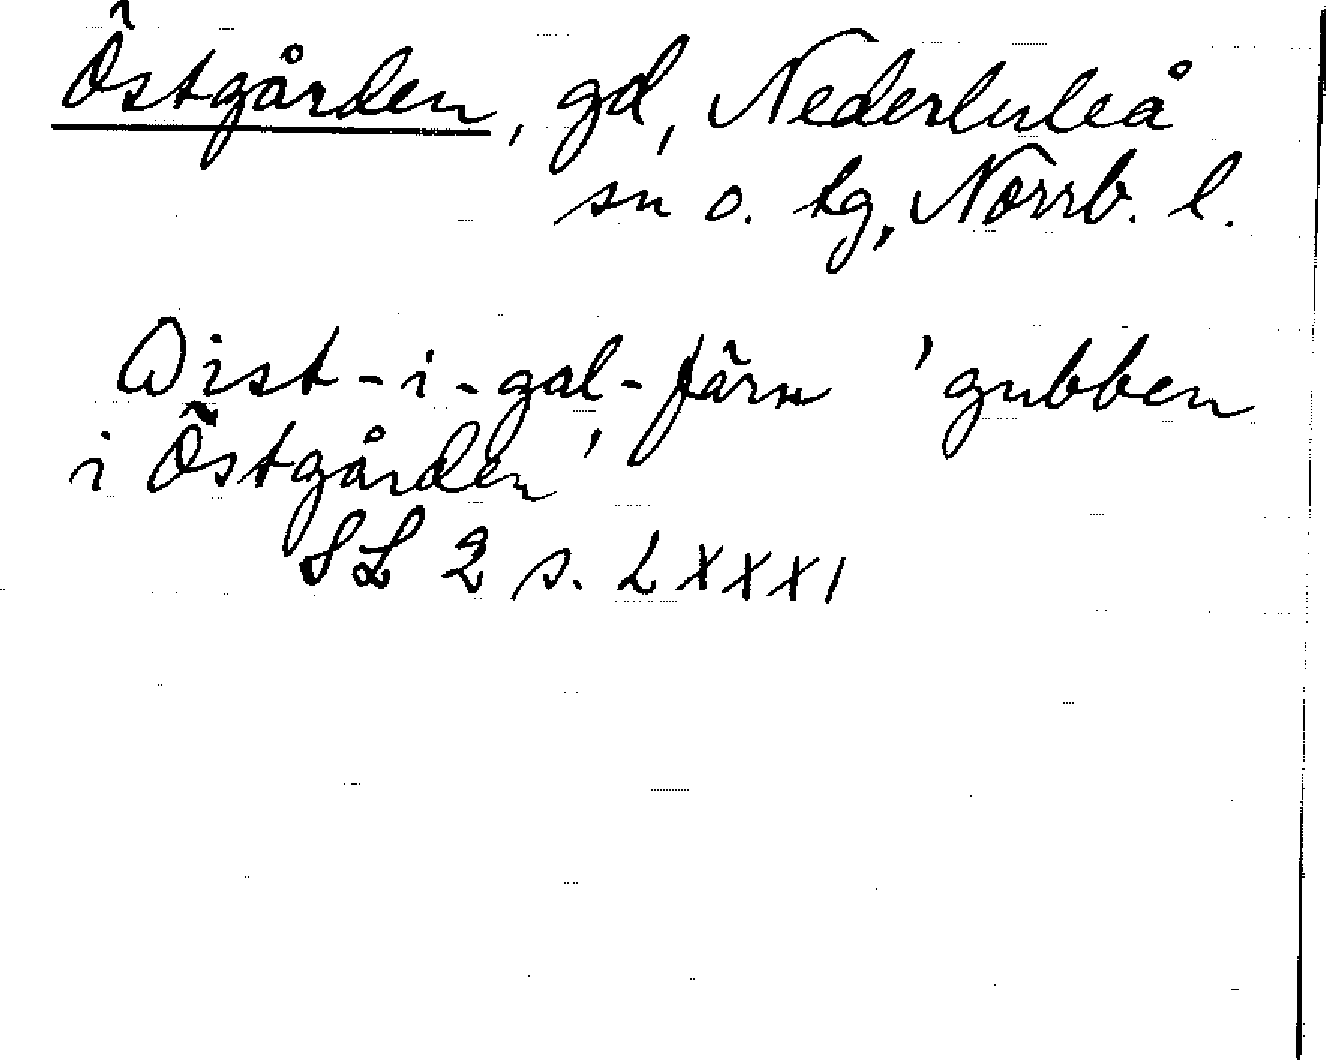 Östgården, gd, Nederluleå
sn o. tg, Norrb. l.
Oist-i-gal-färn 'gubben
i Östgården'
SL 2 s. LXXXI